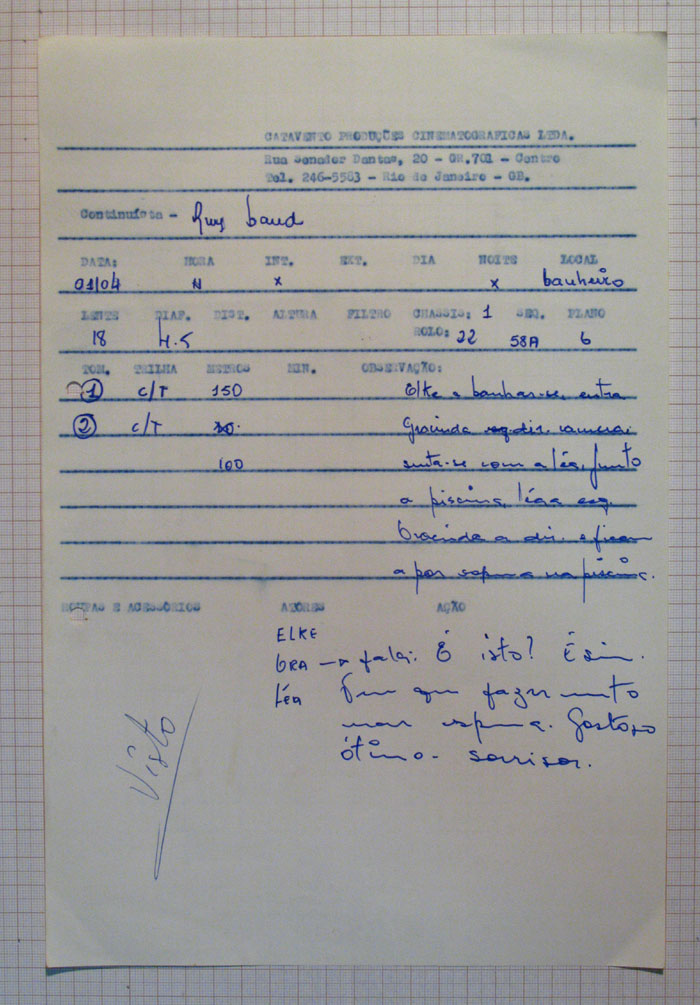 CATAVENTO PRODUÇÕES CINEMATOGRAFICAS LTDA.
Rua Senador Dantas, 20 - GR.701 - Centro
Tel. 246-5583 - Rio de Janeiro - GB.
Continuísta - Ruy
DATA: HORA INT. EXT. DIA NOITE LOCAL
01/04 N x x banheiro
LENTE DIAF. DIST. ALTURA FILTRO CHASSIS: 1 SEQ. PLANO
18 4.5 ROLO: 22 58A 6
TOM. TRILHA METROS MIN. OBSERVAÇÃO:
1 c/T 150 Elke a banhar-se, entra
2 c/T Gracinda dir. camera.
100 senta-se com a léa, junto
a piscina, léa a esq.
Gracinda a dir. e ficam
a por espuma na piscina.
ROUPAS E ACESSÓRIOS ATORES AÇÃO
ELKE
GRA → fala: É isto? É sim.
Léa Tem que fazer muito
mais espuma. Gostoso
ótimo - sorrisos.
Visto